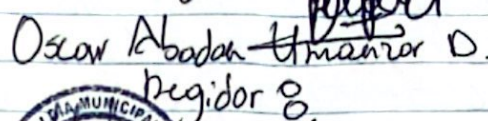 Oscar Abadan Umanzor D.
Regidor 8
MUNICIPA